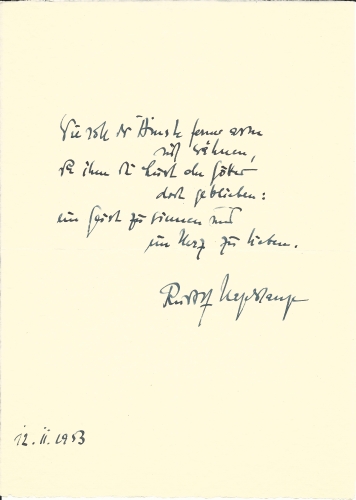 Wie soll der Mensch ferner arm
sich wähnen,
da ihm die Gunst der Götter
doch geblieben:
ein Geist zu sinnen und
ein Herz zu lieben.
Rudolf
12. II. 1953